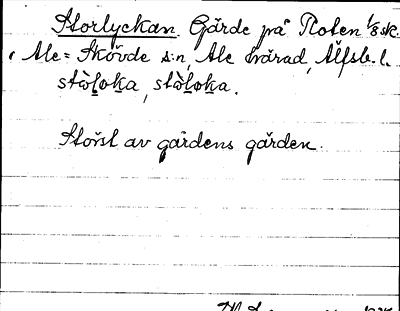 Storlyckan. Gärde på Roten 1/8 sk.
i Ale-Skövde s:n, Ale härad, Älfsb. l.
stòl̥oka, stòl̥oka.
Störst av gårdens gärden.